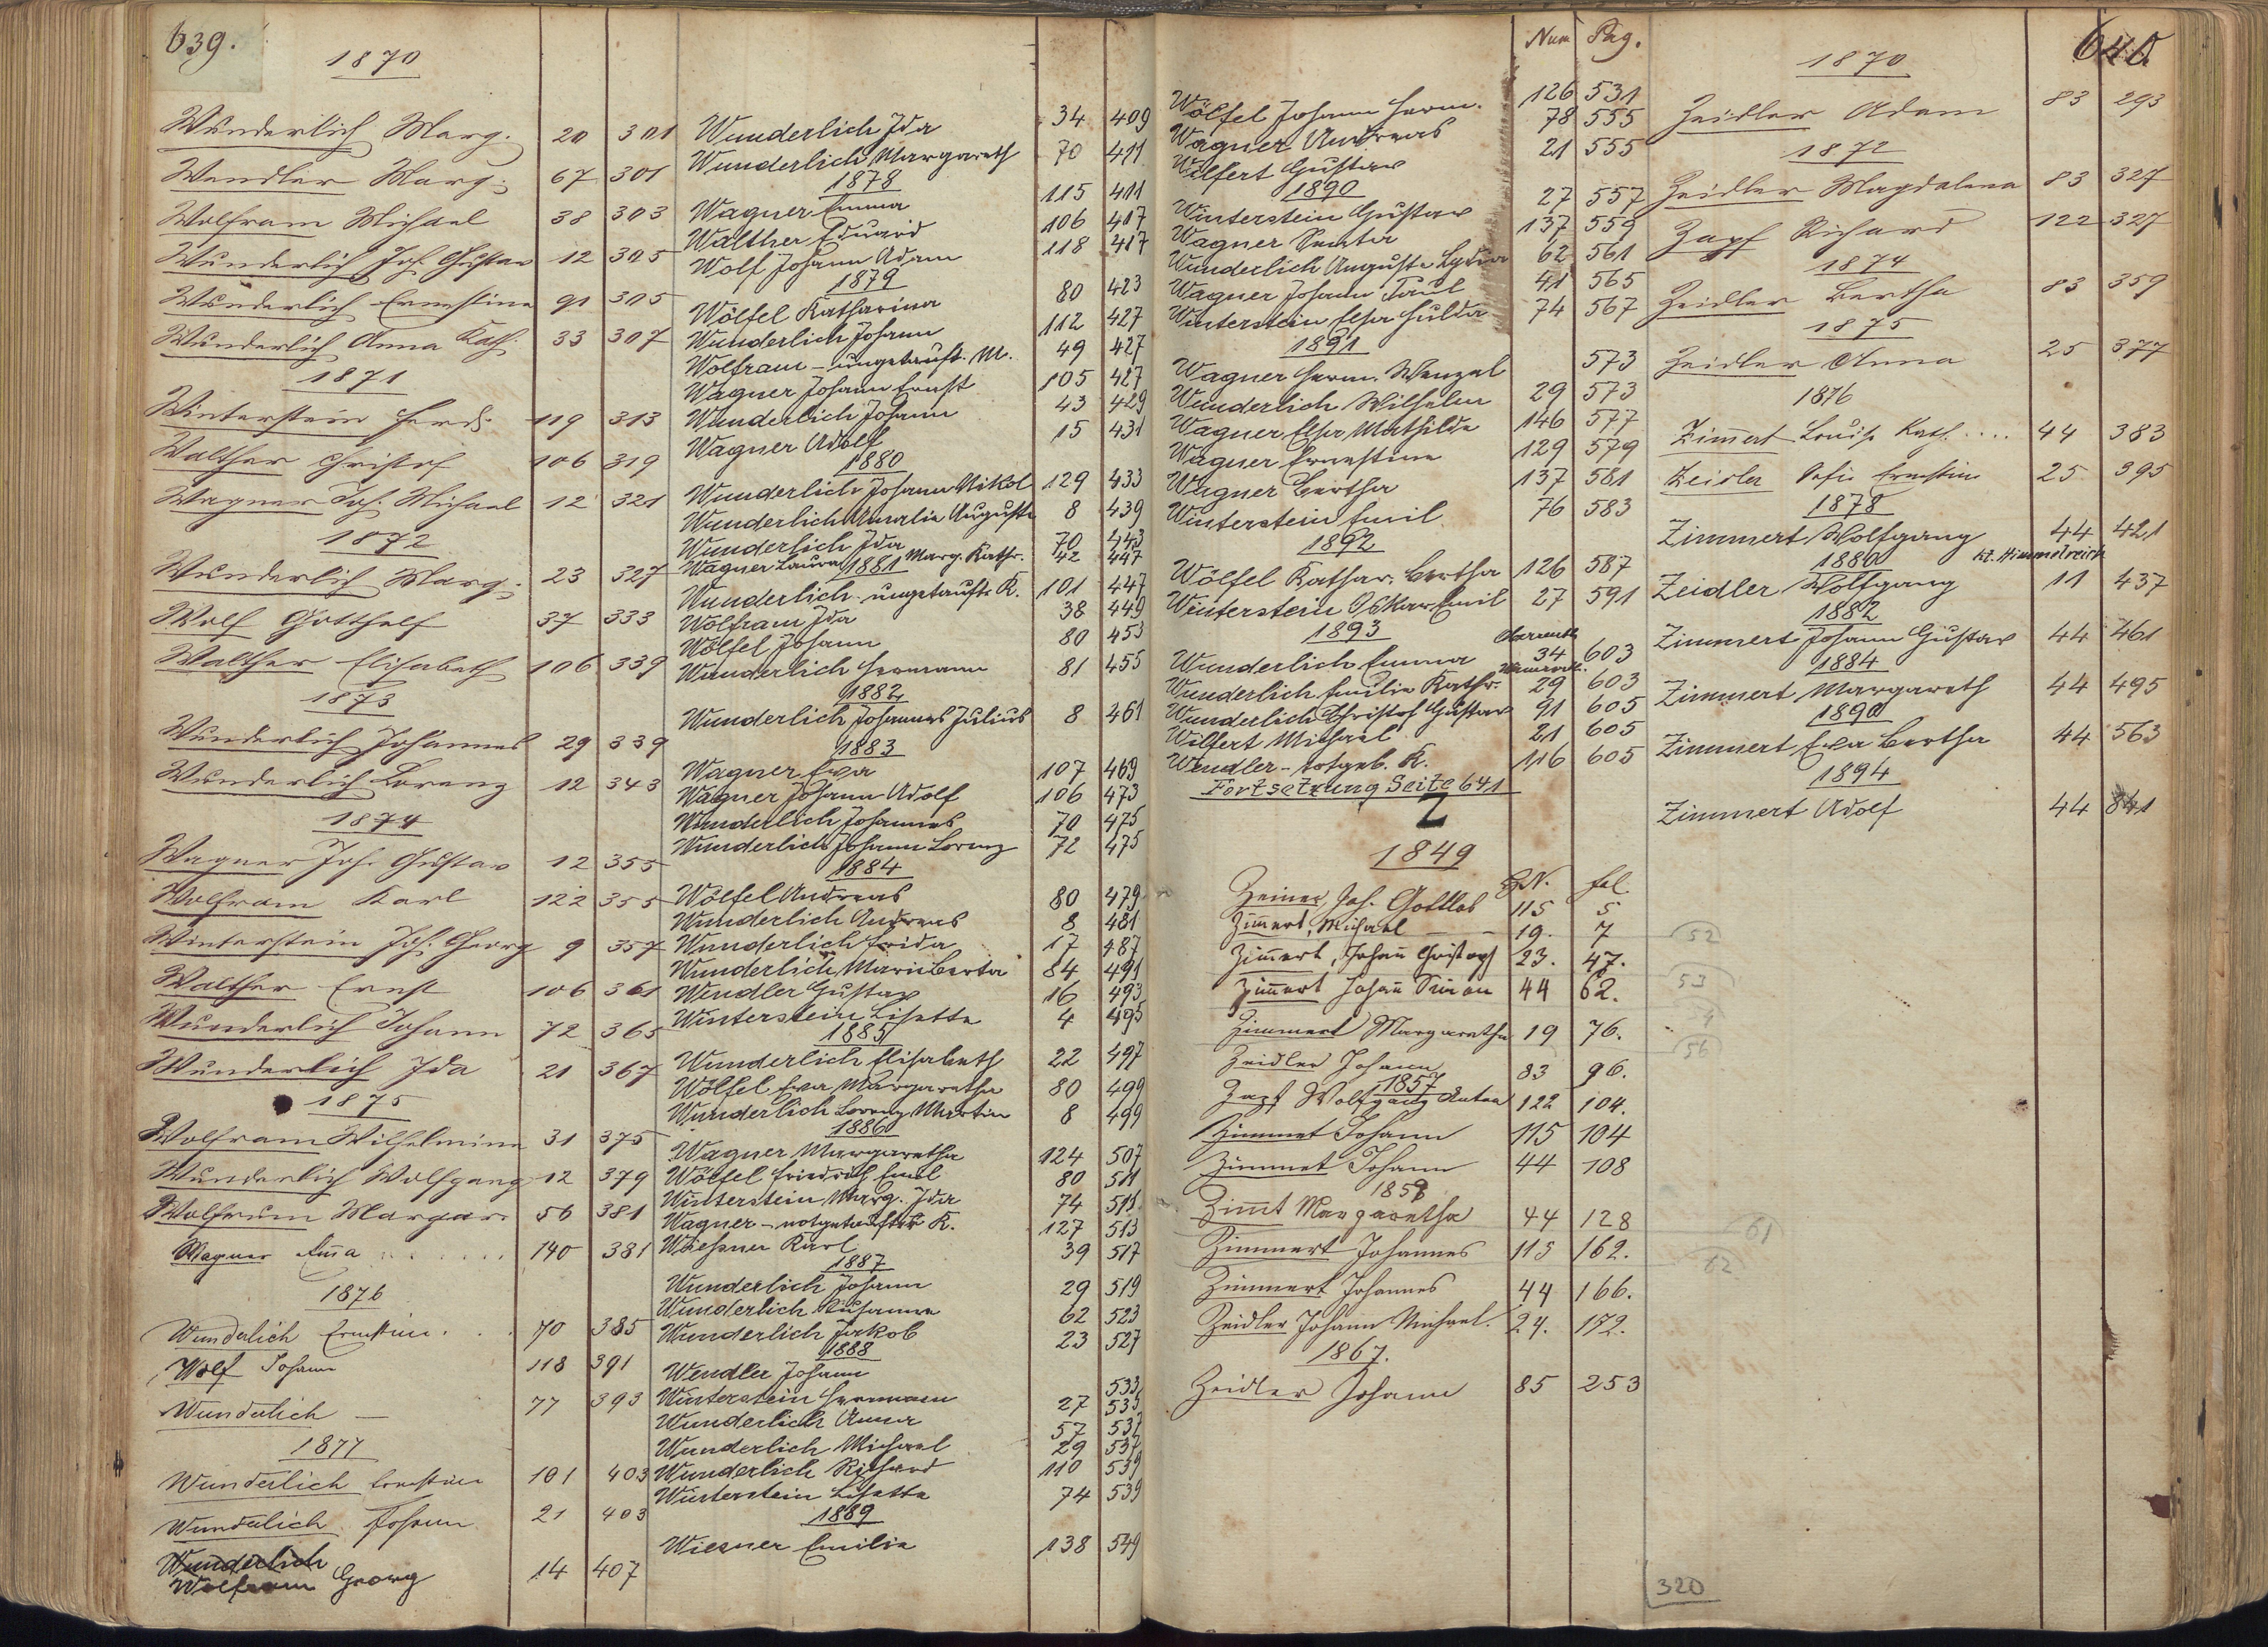 639.
1870
Wunderlich Marg. 20 301
Wendler Marg. 67 301
Wolfram Michael 38 303
Wunderlich Joh. Gustav 12 305
Wunderlich Ernestine 91 305
Wunderlich Anna Kath. 33 307
1871
Winterstein Ferd. 119 313
Walther Christof 106 319
Wagner Joh. Michael 12 321
1872
Wunderlich Marg. 23 327
Wolf Gotthelf 37 333
Walther Elisabeth 106 339
1873
Wunderlich Johannes 29 339
Wunderlich Lorenz 12 343
1874
Wagner Joh. Gustav 12 355
Wolfram Karl 122 355
Winterstein Joh. Georg 9 357
Walther Ernst 106 361
Wunderlich Johann 72 365
Wunderlich Ida 21 367
1875
Wolfram Wilhelmine 31 375
Wunderlich Wolfgang 12 379
Wolfrum Margar. 56 381
Wagner Em̄a 140 381
1876
Wunderlich Ernestine 70 385
Wolf Johann 118 391
Wunderlich — 77 393
1877
Wunderlich Ernestine 101 403
Wunderlich Johann 21 403
Wunderlich
Wolfram Georg 14 407
Wunderlich Ida 34 409
Wunderlich Margareth 70 411
1878
Wagner Emma 115 411
Walther Eduard 106 417
Wolf Johann Adam 118 417
1879
Wölfel Katharina 80 423
Wunderlich Johann 112 427
Wolfram - ungetauft. M. 49 427
Wagner Johann Ernst 105 427
Wunderlich Johann 43 429
Wagner Adolf 15 431
1880
Wunderlich Johann Nikol 129 433
Wunderlich Amalie Auguste 8 439
Wunderlich Ida 70 443
Wagner Laura Marg. Kathr. 42 447
1881
Wunderlich - ungetauft. K. 101 447
Wolfram Ida 38 449
Wölfel Johann 80 453
Wunderlich Hermann 81 455
1882
Wunderlich Johannes Julius 8 461
1883
Wagner Eva 107 469
Wagner Johann Adolf 106 473
Wunderlich Johannes 70 475
Wunderlich Johann Lorenz 72 475
1884
Wölfel Andreas 80 479
Wunderlich Andreas 8 481
Wunderlich Frida 17 487
Wunderlich, Marie Berta 84 491
Wendler Gustav 16 493
Winterstein Lisette 4 495
1885
Wunderlich Elisabeth 22 497
Wölfel Eva Margaretha 80 499
Wunderlich Lorenz Martin 8 499
1886
Wagner Margaretha 124 507
Wölfel Friedrich Emil 80 511
Winterstein, Marg. Ida 74 513
Wagner - notgetaufter K. 127 513
Wießner Karl 39 517
1887
Wunderlich Johann 29 519
Wunderlich Susanna 62 523
Wunderlich Jakob 23 527
1888
Wendler Johann 533
Winterstein Hermann 27 535
Wunderlich Anna 57 537
Wunderlich Michael 29 537
Wunderlich Richard 110 539
Winterstein Lisette 74 539
1889
Wiesner Emilie 138 549
Num Pag.
Wölfel Johann Herm. 126 531
Wagner Andreas 78 555
Wilfert Gustav 21 555
1890
Winterstein Gustav 27 557
Wagner 137 559
Wunderlich Auguste Lydia 62 561
Wagner Johann Paul 41 565
Winterstein Elsa Hulda 74 567
1891
Wagner Herm. Wenzel 573
Wunderlich Wilhelm 29 573
Wagner Elsa Mathilde 146 577
Wagner Ernestine 129 579
Wagner Bertha 137 581
Winterstein Emil 76 583
1892
Wölfel Kathar. Bertha 126 587
Winterstein Oskar Emil 27 591
1893
Wunderlich Emma 34 603
Wunderlich Emilie Kathr. 29 603
Wunderlich Christof Gustav 91 605
Wilfert Michael 21 605
Wendler - totgeb. K. 116 605
Fortsetzung Seite 641
Z
1849
N. fol.
Zeiner, Joh. Gottlob 115 5
Zim̄ert, Michael — — 19. 7
Zim̄ert, Johan̄ Christoph 23. 47.
Zim̄ert Johan̄ Simon 44 62.
Zimmert Margaretha 19 76.
Zeidler Johann 83 96.
1857
Zapf Wolfgang Anton 122 104.
Zimmet Johann 115 104
Zimmet Johann 44 108
1859
Zim̄t Margaretha 44 128
Zimmert Johannes 115 162.
Zimmert Johannes 44 166.
Zeidler Johann Michael. 24. 172.
1867.
Zeidler Johann 85 253
640.
1870
Zeidler Adam 83 293
1872
Zeidler Magdalena 83 327
Zapf Richard 122 327
1874
Zeidler Bertha 83 359
1875
Zeidler Anna 25 377
1876
Zim̄ert Louise Kath. .... 44 383
Zeidler Sofie Ernestine 25 395
1878
Zimmert Wolfgang 44 421
1880
Kl. Himmelreich
Zeidler Wolfgang 11 437
1882
Zimmert Johann Gustav 44 461
1884
Zimmert Margareth 44 495
1890
Zimmert Eva Bertha 44 563
1894
Zimmert Adolf 44 841
52
53
56
61
62
320